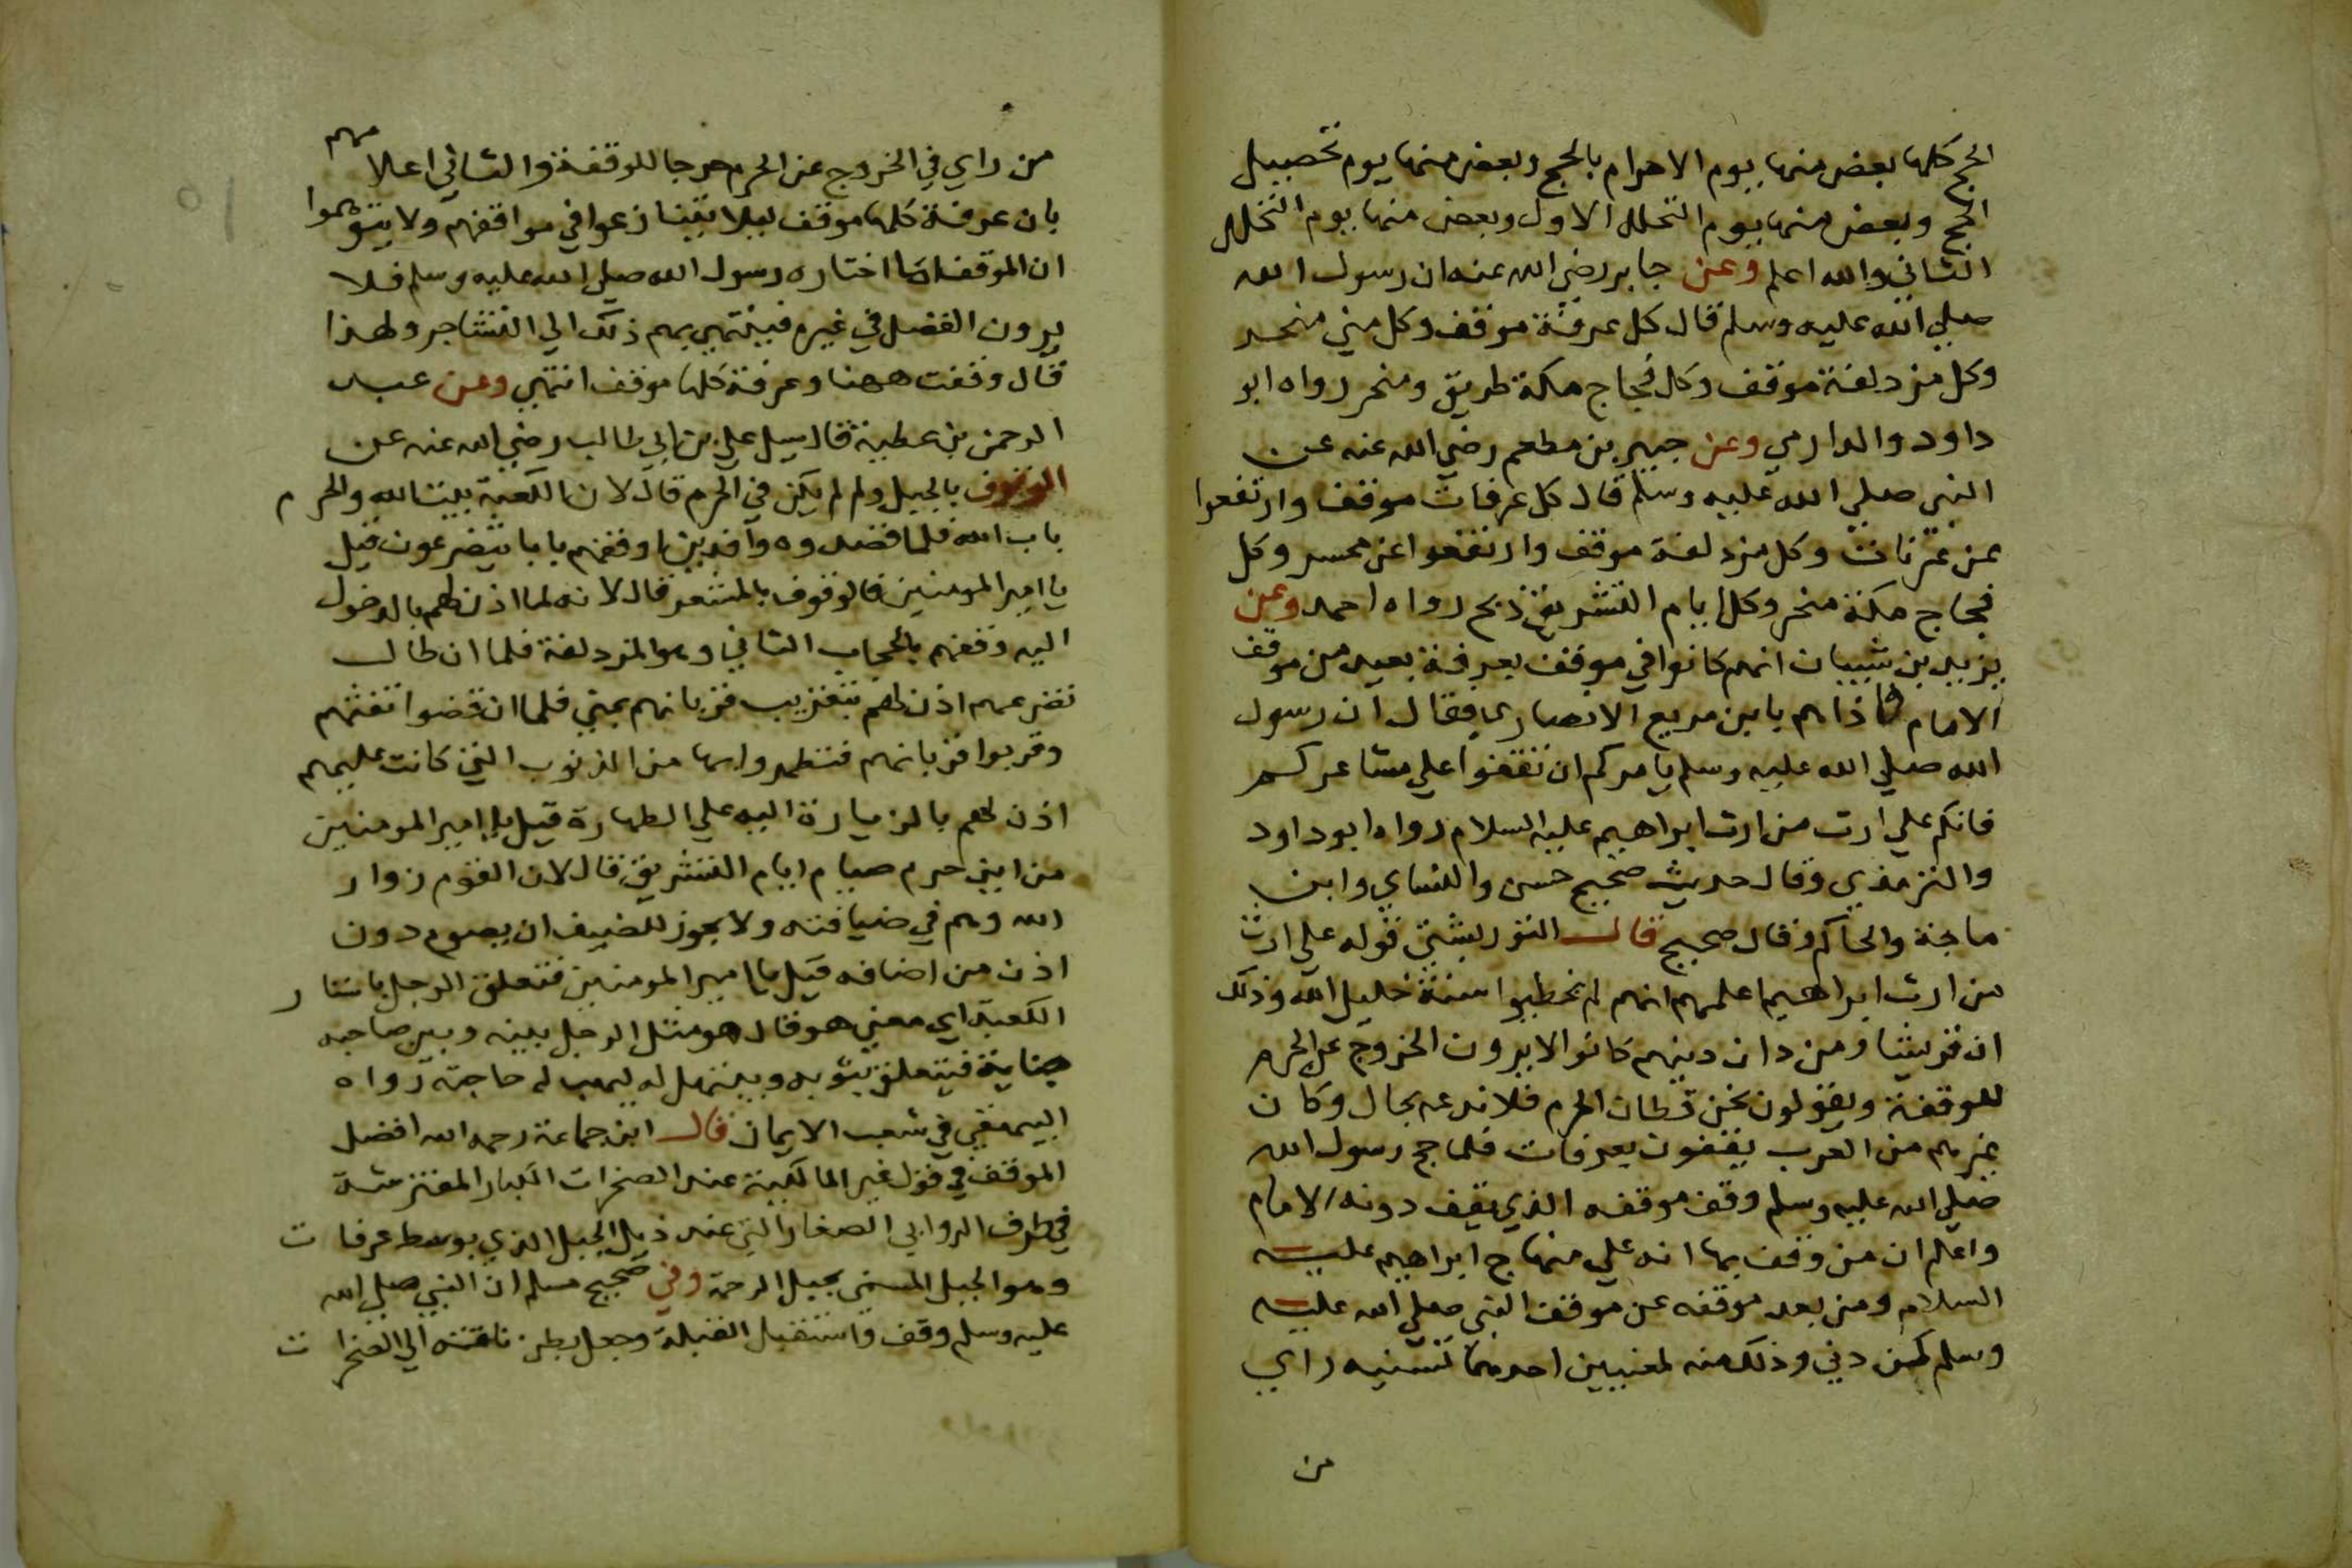 الحج كلها بعض منها يوم الاحرام بالحج وبعض منها يوم تحصيل
الحج وبعض منها يوم التحلل الاول وبعض منها يوم التحلل
الثاني والله اعلم وعن جابر رضي الله عنه ان رسول الله
صلي الله عليه وسلم قال كل عرفة موقف وكل مني منحر
وكل مزدلفة موقف وكل فجاج مكة طريق ومنحر رواه ابو
داود والدارمي وعن جبير بن مطعم رضي الله عنه عن
النبي صلي الله عليه وسلم قال كل عرفات موقف وارتفعوا
عن عرنات وكل مزدلفة موقف وارتفعوا عن محسر وكل
فجاج مكة منحر وكل ايام التشريق ذبح رواه احمد وعن
يزيد بن شيبان انهم كانوا في موقف بعرفة بعيد من موقف
الامام فاذا هم بابن مربع الانصاري فقال ان رسول
الله صلي الله عليه وسلم يامركم ان تقفوا علي مشاعركم
فانكم علي ارث من ارث ابراهيم عليه السلام رواه ابو داود
والترمذي وقال حديث صحيح حسن والنساي وابن
ماجة والحاكم وقال صحيح قال التوربشتي قوله علي ارث
من ارث ابراهيم اعلمهم انهم لم يخطيوا سنة خليل الله وذلك
ان قريشا ومن دان دينهم كانوا لا يرون الخروج عن الحرم
للوقفة ويقولون نحن قطان الحرم فلا ندعه بحال وكان
غيرهم من العرب يقفون بعرفات فلما حج رسول الله
صلي الله عليه وسلم وقف موقفه الذي يقف دونه الامام
واعلم ان من وقف بها انه علي منهاج ابراهيم عليه
السلام ومن بعد موقفه عن موقف النبي صلي الله عليه
وسلم كمن دني وذلك منه لمعنيين احدهما تسفيه راي
من
من راي في الخروج عن الحرم حرجا للوقفة والثاني اعلامهم
بان عرفة كلها موقف ليلا يتنازعوا في مواقفهم ولا يتوهموا
ان الموقف ما اختاره رسول الله صلي الله عليه وسلم فلا
يرون الفضل في غيره فينتهي بهم ذلك الي التشاجر ولهذا
قال وقفت ههنا وعرفة كلها موقف انتهي وعن عبد
الرحمن بن عطية قال سيل علي بن ابي طالب رضي الله عنه عن
الوقوف بالجبل ولم لم يكن في الحرم قال لان الكعبة بيت الله والحرم
باب الله فلما قصدوه وافدين اوقفهم بابا يتضرعون قيل
يا امير المومنين فالوقوف بالمشعر قال لانه لما اذن لهم بالدخول
اليه وقفهم بالحجاب الثاني وهو المزدلفة فلما ان طال
تضرعهم اذن لهم بتقريب قربانهم بمني فلما ان قضوا تفثهم
وقربوا قربانهم فتطهروا بها من الذنوب التي كانت عليهم
اذن لهم بالزيارة اليه علي الطهارة قيل يا امير المومنين
من اين حرم صيام ايام التشريق قال لان القوم زوار
الله وهم في ضيافته ولا يجوز للضيف ان يصوم دون
اذن من اضافه قيل يا امير المومنين فتعلق الرجل باستار
الكعبة اي معني هو قال هو مثل الرجل بينه وبين صاحبه
جناية فيتعلق بثوبه ويبتهل له ليهب له حاجته رواه
البيهقي في شعب الايمان قال ابن جماعة رحمه الله افضل
الموقف في قول غير المالكية عند الصخرات الكبار المفترشة
في طرف الروابي الصغار التي عند ذيل الجبل الذي بوسط عرفات
وهو الجبل المسمي بجبل الرحمة وفي صحيح مسلم ان النبي صلي الله
عليه وسلم وقف واستقبل القبلة وجعل بطن ناقته الي الصخرات